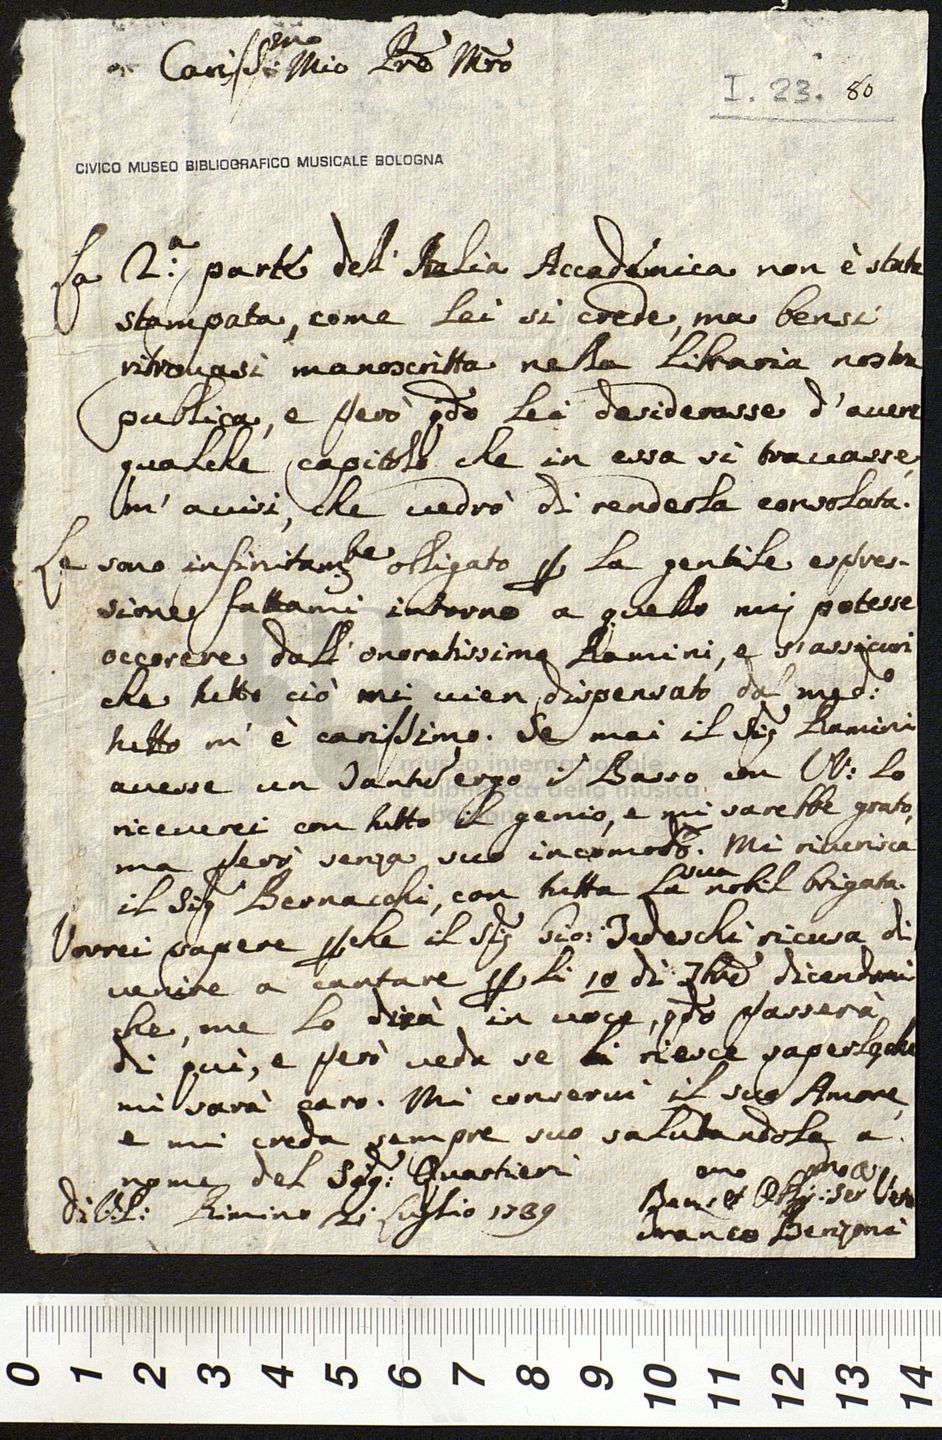 Cariss.mo Mio Pre Mro
I. 23. 80
CIVICO MUSEO BIBLIOGRAFICO MUSICALE BOLOGNA
La 2.a parte dell'Italia Accademica non è stata
stampata, come Lei si crede, ma bensi
ritrovasi manoscritta nella Libraria nostra
publica, e però qdo Lei desiderasse d'avere
qualche capitolo che in essa si trovasse,
m'avisi, che vedrò di renderla consolata.
Le sono infinitamte obligato p La gentile espres-
sione fattami intorno a quello mi potesse
occorere dall'onoratissimo Ramini, e s'assicuri
che tutto ciò mi vien dispensato da med.o
tutto m'è carissimo. Se mai il Sig Ramini
avesse un Tantu ergo à Basso con VV: Lo
riceverei con tutto il genio, e mi sarebbe grato,
ma però senza suo incomodo. Mi riverisca
il Sig Bernacchi, con tutta La sua nobil brigata.
Vorrei sapere pche il Sig Gio: Tedeschi ricusa di
venire a cantare p li 10 di 7bre dicendomi
che, me Lo dirà in voce, qdo passerà
di quì, e però veda se li riesce saperlo, che
mi sarà caro. Mi conservi il suo Amore,
e mi creda sempre suo salutandola a
nome del Sigr: Quartieri
di V.S: Rimino 21 Luglio 1739
museo internazionale
biblioteca della musica
bologna
Franco Benzoni
0 1 2 3 4 5 6 7 8 9 10 11 12 13 14